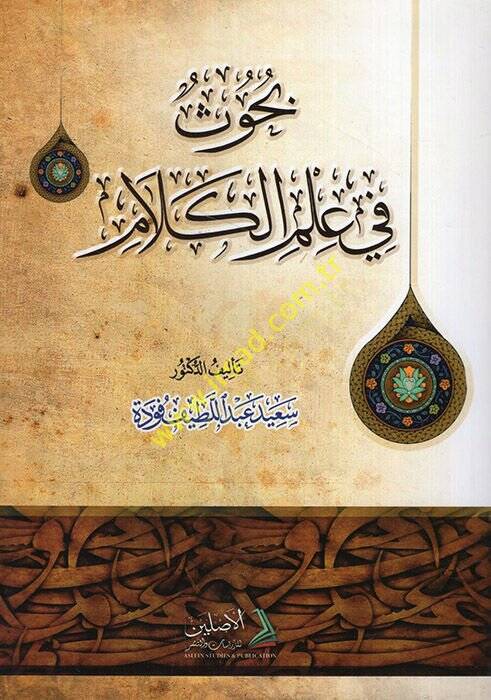 بُحُوثٌ
فِي عِلْمِ الكَلَامِ
تَأليفُ الدُّكتُور
سَعِيد عَبْد اللَّطِيف فُودَة
الأصلين
للدراسات والنشر
ASLEIN STUDIES & PUBLICATION